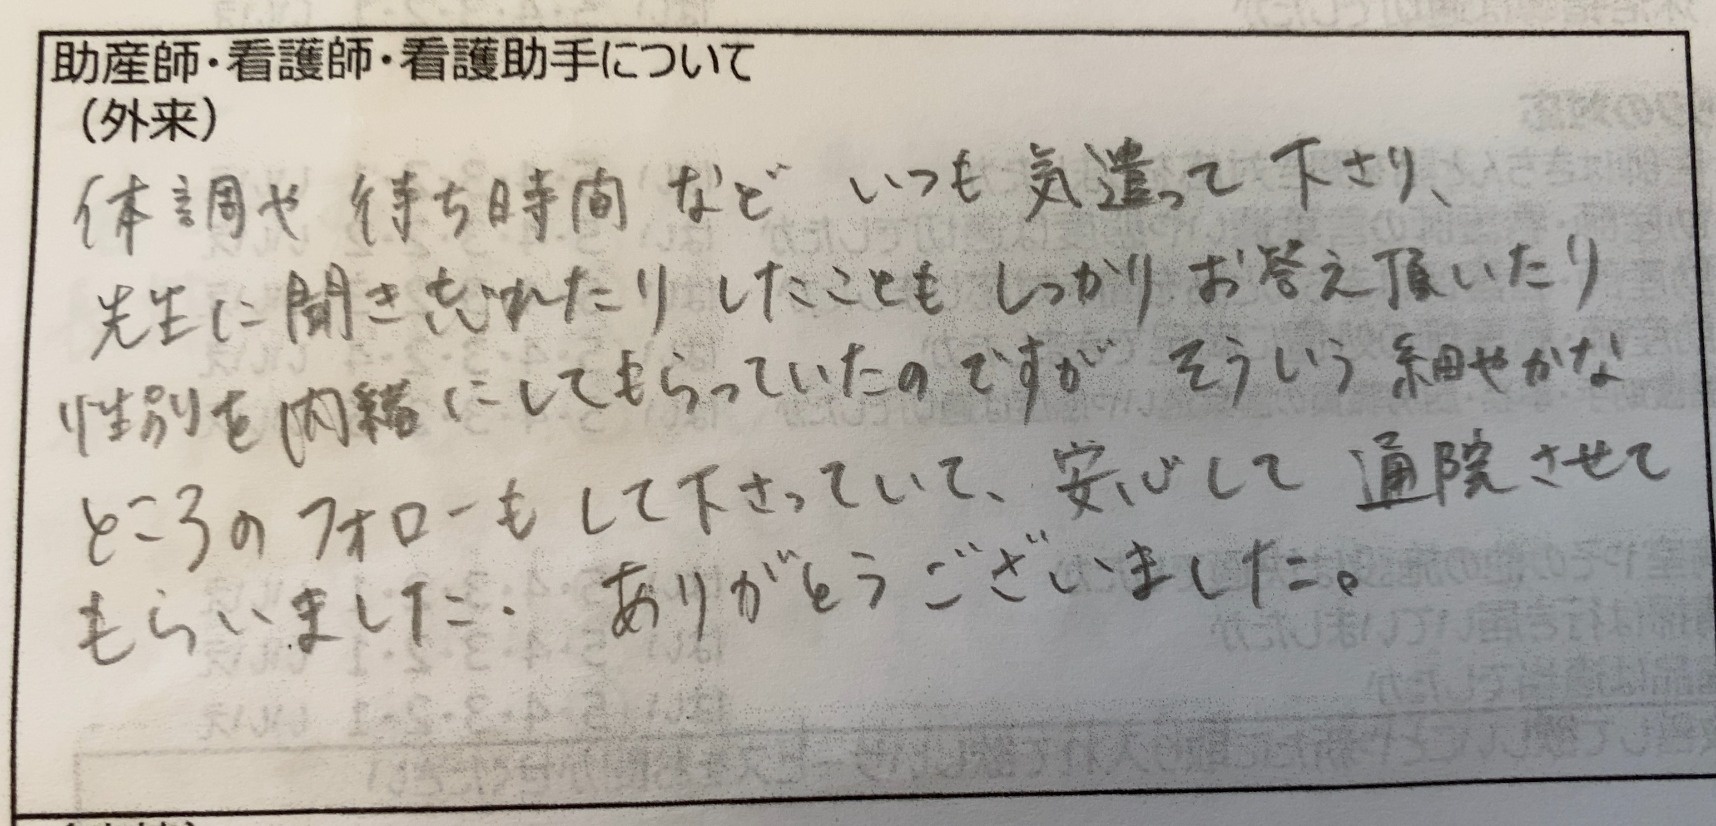 助産師・看護師・看護助手について
(外来)
体調や 待ち時間 など いつも 気遣って 下さり、
先生に 聞き忘れたり したことも しっかり お答え頂いたり
性別を内緒にしてもらっていたのですが そういう 細やかな
ところの フォローも して下さっていて、安心して 通院させて
もらいました. ありがとうございました。